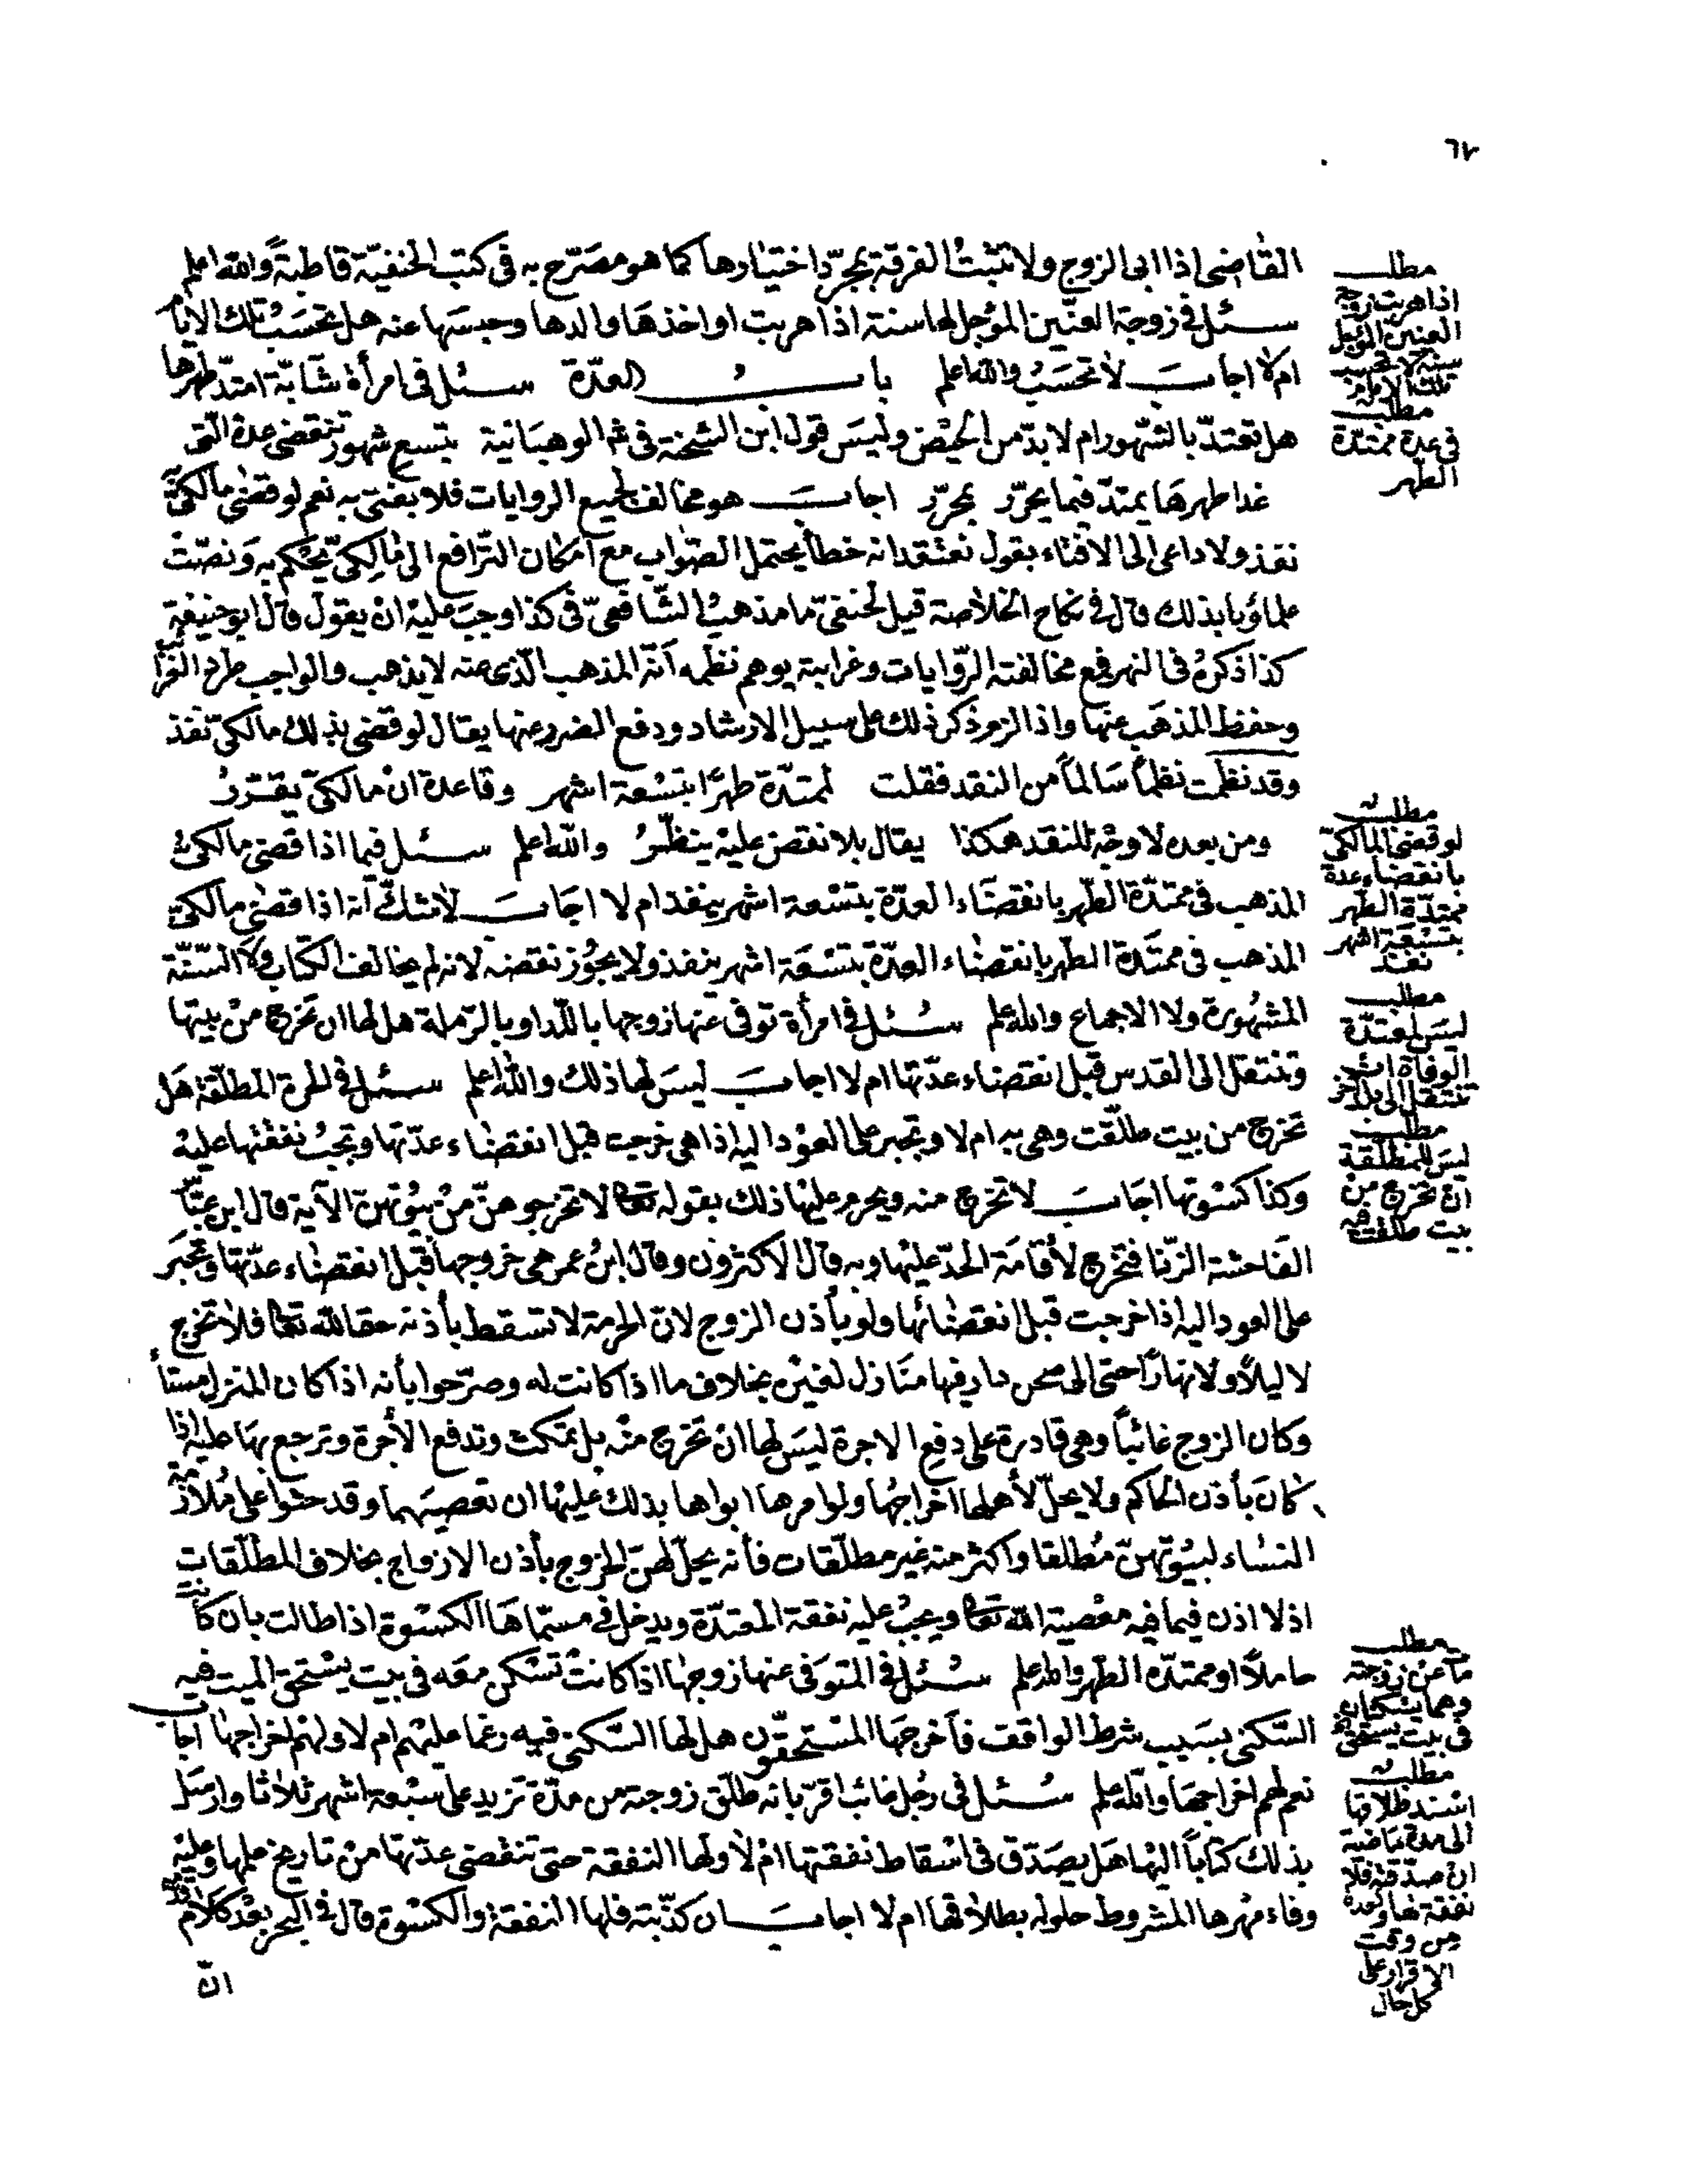 ٦٧
القاضى اذا ابى الزوج ولا تثبت الفرقة بمجرّد اختيارها كما هو مصرّح به فى كتب الحنفيّة قاطبةً والله اعلم
سئل فى زوجة العنّين المؤجل لها سنة اذا هربت او اخذها والدها وحبسها عنه هل تحسب تلك الايام
ام لا اجاب لا تحسب والله اعلم باب العدّة سئل فى امرأة شابّة امتدّ طهرها
هل تعتدّ بالشهور ام لا بدّ من الحيض وليس قول ابن الشحنة فى شرح الوهبانية بتسع شهور تنقضى عدة التى
غدا طهرها يمتدّ فيما يحرّر بحرّر اجاب هو مخالف لجميع الروايات فلا يفتى به نعم لو قضى مالكىّ
نفذ ولا داعى الى الافتاء بقول نعتقد انه خطأ يحتمل الصواب مع امكان الترافع الى مالكىّ يحكم به ونصّت
علماؤنا بذلك قال فى نكاح الخلاصة قيل لحنفىّ ما مذهب الشافعىّ فى كذا وجب عليه ان يقول قال ابو حنيفة
كذا ذكره فى النهر فمع مخالفته الرّوايات وغرابته يوهم نظمه انّه المذهب الذى عنه لا يذهب والواجب طرح الغرائب
وحفظ المذهب عنها واذا لزم ذكر ذلك على سبيل الارشاد ودفع الضرر عنها يقال لو قضى بذلك مالكىّ نفذ
وقد نظمت نظماً سالماً من النقد فقلت لممتدّة طهرًا بتسعة اشهر وقاعدة ان مالكىّ يقرّر
ومن بعده لا وجه للنقد هكذا يقال بلا نقض عليه ينظّر والله اعلم سئل فيما اذا قضى مالكى
المذهب فى ممتدّة الطهر بانقضاء العدّة بتسعة اشهر ينفذ ام لا اجاب لا شك انه اذا قضى مالكىّ
المذهب فى ممتدة الطهر بانقضاء العدّة بتسعة اشهر ينفذ ولا يجوز نقضه لانه لم يخالف الكتاب ولا السّنّة
المشهورة ولا الاجماع والله اعلم سئل فى امرأة توفى عنها زوجها باللّد او بالرملة هل لها ان تخرج من بيتها
وتنتقل الى القدس قبل انقضاء عدّتها ام لا اجاب ليس لها ذلك والله اعلم سئل فى الحرة المطلّقة هل
تخرج من بيت طلّقت وهى به ام لا وتجبر على العود اليه اذا هى خرجت قبل انقضاء عدّتها وتجب نفقتها عليه
وكذا كسوتها اجاب لا تخرج منه ويحرم عليها ذلك بقوله تعالى لا تخرجوهنّ من بيوتهنّ الآية قال ابن عبّاس
الفاحشة الزّنا فتخرج لأقامة الحدّ عليها وبه قال الاكثرون وقال ابن عمر هى خروجها قبل انقضاء عدّتها وتجبر
على العود اليه اذا خرجت قبل انقضائها ولو بأذن الزوج لانّ الحرمة لا تسقط بأذنه حقا لله تعالى فلا تخرج
لا ليلًا ولا نهارًا حتى الى صحن دار فيها منازل لغيره بخلاف ما اذا كانت له وصرّحوا بأنه اذا كان المنزل مستأجرًا
وكان الزوج غائباً وهى قادرة على دفع الاجرة ليس لها ان تخرج منه بل تمكث وتدفع الأجرة وترجع بها عليه اذا
كان بأذن الحاكم ولا يحلّ لأهلها اخراجها ولو امرها ابواها بذلك عليها ان تعصيهما وقد حثوا على ملازمة
النساء لبيوتهنّ مطلقا واكثر منه غير مطلّقات فأنه يحلّ لهنّ الخروج بأذن الازواج بخلاف المطلّقات
اذ لا اذن فيما فيه معصية الله تعالى ويجب عليه نفقة المعتدّة ويدخل فى مسمّاها الكسوة اذا طالت بان كانت
حاملًا او ممتدّه الطهر والله اعلم سئل فى المتوفى عنها زوجها اذا كانت تسكن معه فى بيت يستحق الميت فيه
السّكنى بسبب شرط الواقف فأخرجها المستحقّون هل لها السّكنى فيه رغما عليهم ام لا ولهم اخراجها اجاب
نعم لهم اخراجها والله اعلم سئل فى رجل غائب اقرّ بانه طلّق زوجته من مدّة تزيد على سبعة اشهر ثلاثا وارسل
بذلك كتاباً اليها هل يصدّق فى اسقاط نفقتها ام لا ولها النفقة حتى تنقضى عدّتها من تاريخ علمها وعليه
وفاء مهرها المشروط حلوله بطلاقها ام لا اجاب ان كذّبته فلها النفقة والكسوة قال فى البحر بعد كلام
انّ
مطلب
اذا هربت زوجة
العنين المؤجل
سنة لا تحسب
تلك الايام
مطلب
فى عدة ممتدّة
الطهر
مطلب
لو قضى المالكىّ
بانقضاء عدة
ممتدّة الطهر
بتسعة اشهر
نفذ
مطلب
ليس لمعتدّة
الوفاة ان
تنتقل الى بلد اخر
مطلب
ليس للمطلّقة
ان تخرج من
بيت طلقت فيه
مطلب
مات عن زوجته
وهما يسكنان
فى بيت يستحق
مطلب
اسند طلاقها
الى مدة ماضية
ان صدّقته فلا
نفقة لها والعدة
من وقت
الاقرار على
كل حال